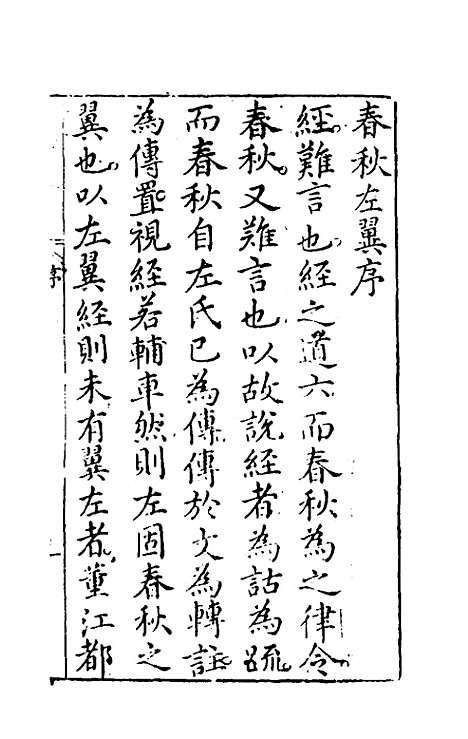 春秋左翼序
經難言也經之道六而春秋為之律令
春秋又難言也以故說經者為詁為疏
而春秋自左氏已為傳傳於文為轉註
為傳置視經若輔車然則左固春秋之
翼也以左翼經則未有翼左者董江都
序
一